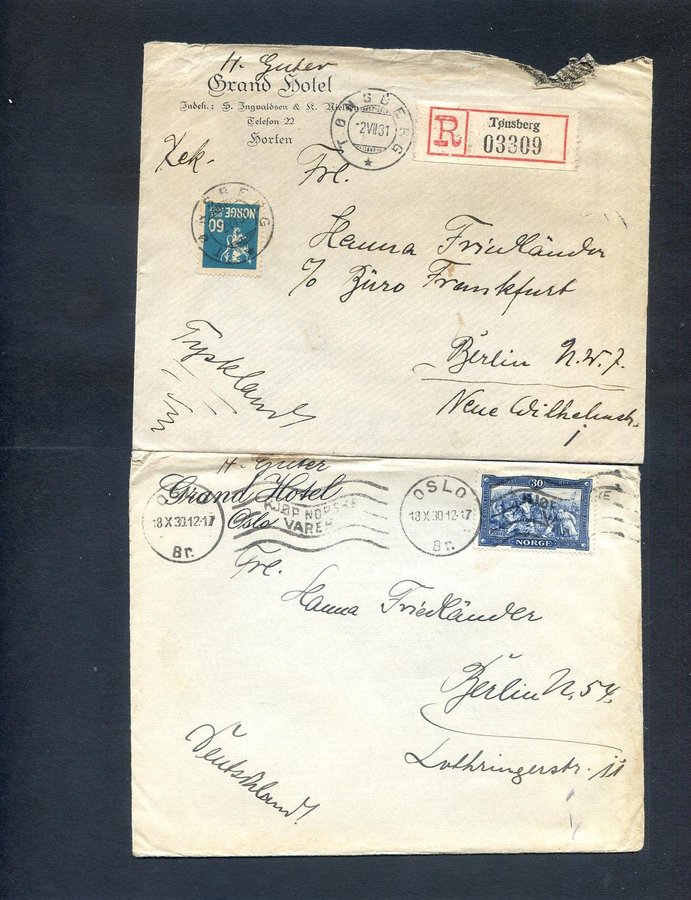 H. Guter
Grand Hotel
Indeh.: S. Ingvaldsen & K.
Telefon 22
Horten
TØNSBERG
2 VII 31
R
Tønsberg
03309
Rek.
Frl.
60
NORGE
Hanna Friedländer
c/o Büro Frankfurt
Berlin N.W.7.
Neue Wilhelmstr.
Tyskland
H. Guter
Grand Hotel
Oslo
OSLO
18 X 30.12-17
Br.
KJØP NORSKE
VARER
OSLO
18 X 30.12-17
Br.
30
NORGE
Frl.
Hanna Friedländer
Berlin N.54.
Lothringerstr. 11
Deutschland!